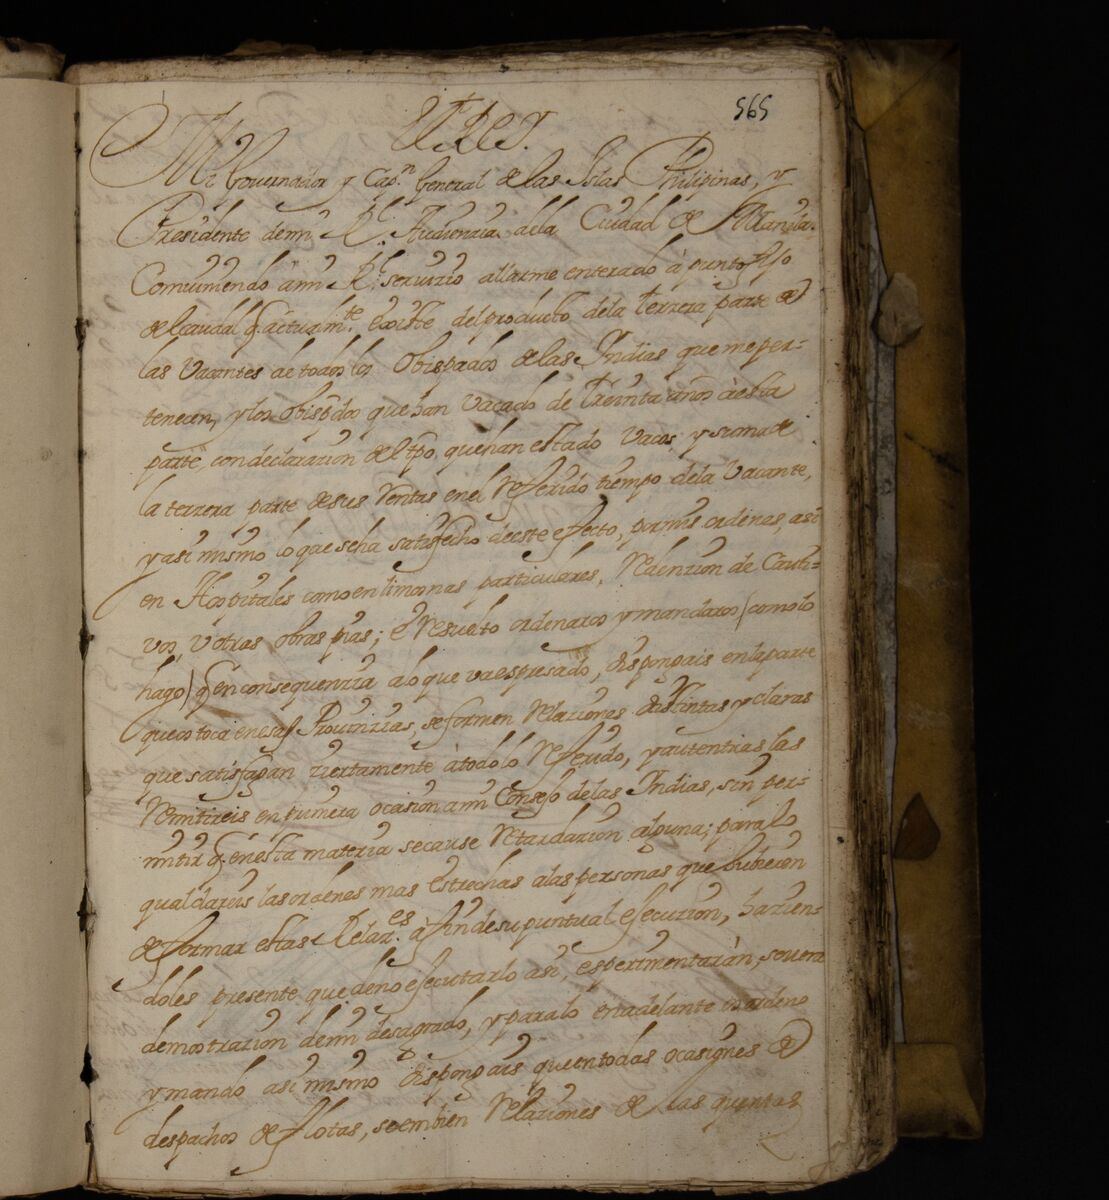 565
El Rey.
Mi Governador y Cap.n General de las Islas Philipinas, y
Presidente demi Rl. Audiencia dela Ciudad de Manila.
Combiniendo ami Rl. servizio allarme enterado à punto fijo
de el caudal q̃ actualmte. existe del producto dela terzera parte de
las vacantes de todos los Obispados de las Indias que me per-
tenecen, y los obispdos que han vacado de treinta años à esta
parte, con declarazion del tpo, que han estado vacos, y suma de
la terzera parte de sus Rentas en el Referido tiempo dela Vacante,
y asi mismo lo que se ha satisfecho de este efecto, por mis ordenes, asi
en Hospitales como en limosnas particulares, Redenzion de Cauti-
vos, y otras obras pias; è Resuelto ordenaros y mandaros (como lo
hago) q̃ en consequenzia a lo que va espresado, dispongais en la parte
que os toca en esas Provinzias, se formen Relaziones distintas y claras
que satisfagan ziertamente à todo lo Referido, y autenticas las
Remitireis en primera ocasion ami Consejo de las Indias, sin per-
mitir q̃ en esta materia se cause Retardazion alguna; para lo
qual dareis las ordenes mas estrechas alas personas que hubieren
de formar estas Relaz.es à fin de su puntual ejecuzion, hazien-
doles presente que de no ejecutarlo asi, esperimentaràn, severa
demostrazion demi desagrado, y para lo en adelante os ordeno
y mando asi mismo dispongais que en todas ocasiones de
despachos de flotas, se embien Relaziones de las quentas